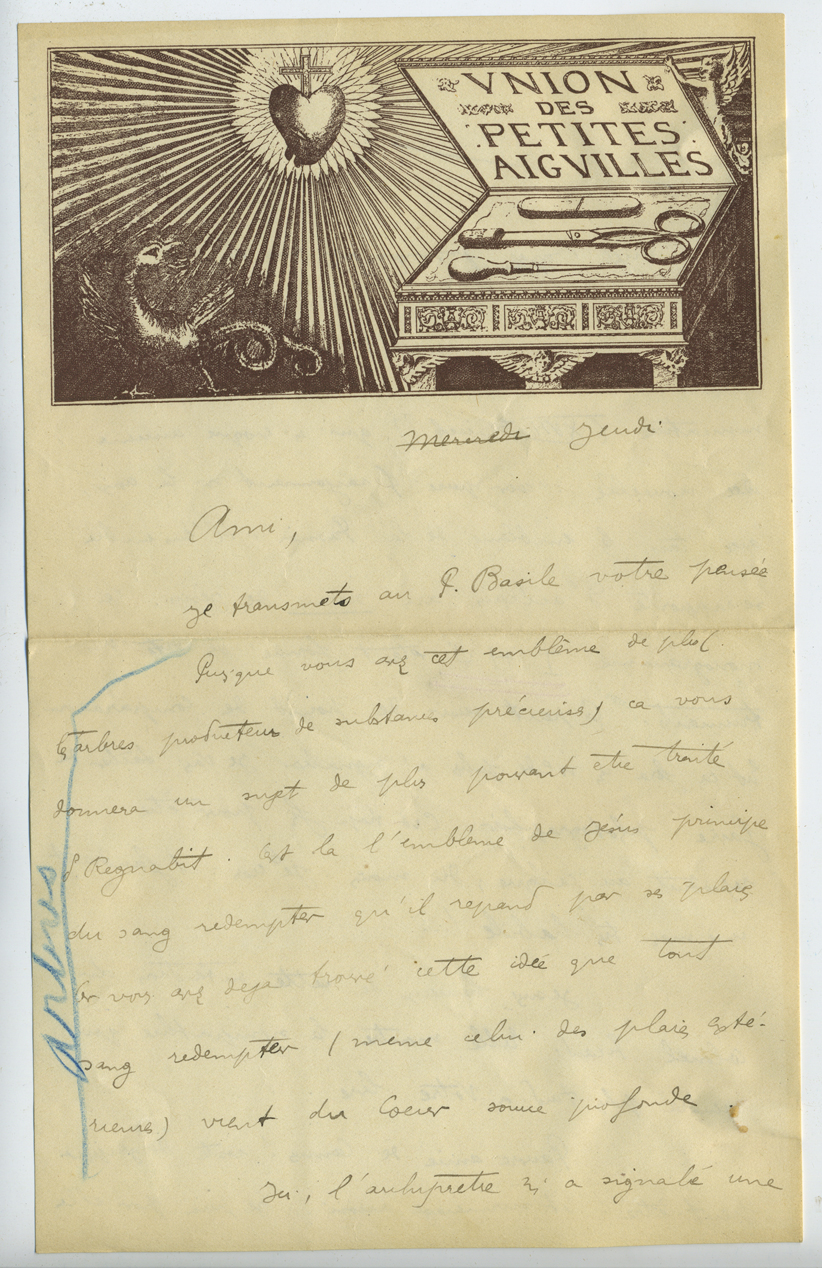 VNION
DES
PETITES
AIGVILLES
Mercredi Jeudi
Ami,
je transmets au P. Basile votre pensée
Puisque vous avez cet emblème de plus (
les arbres producteur de substances précieuses) ca vous
donnera un sujet de plus pouvant etre traité
Regnabit. Est la l'emblème de Jésus principe
du sang redempter qu'il repand par ses plaies
or vous avez deja trouvé cette idée que tout
sang redempter (meme celui des plaies exté-
rieures) vient du Coeur source profonde.
Ici, l'archiprêtre a signalé une
arbres